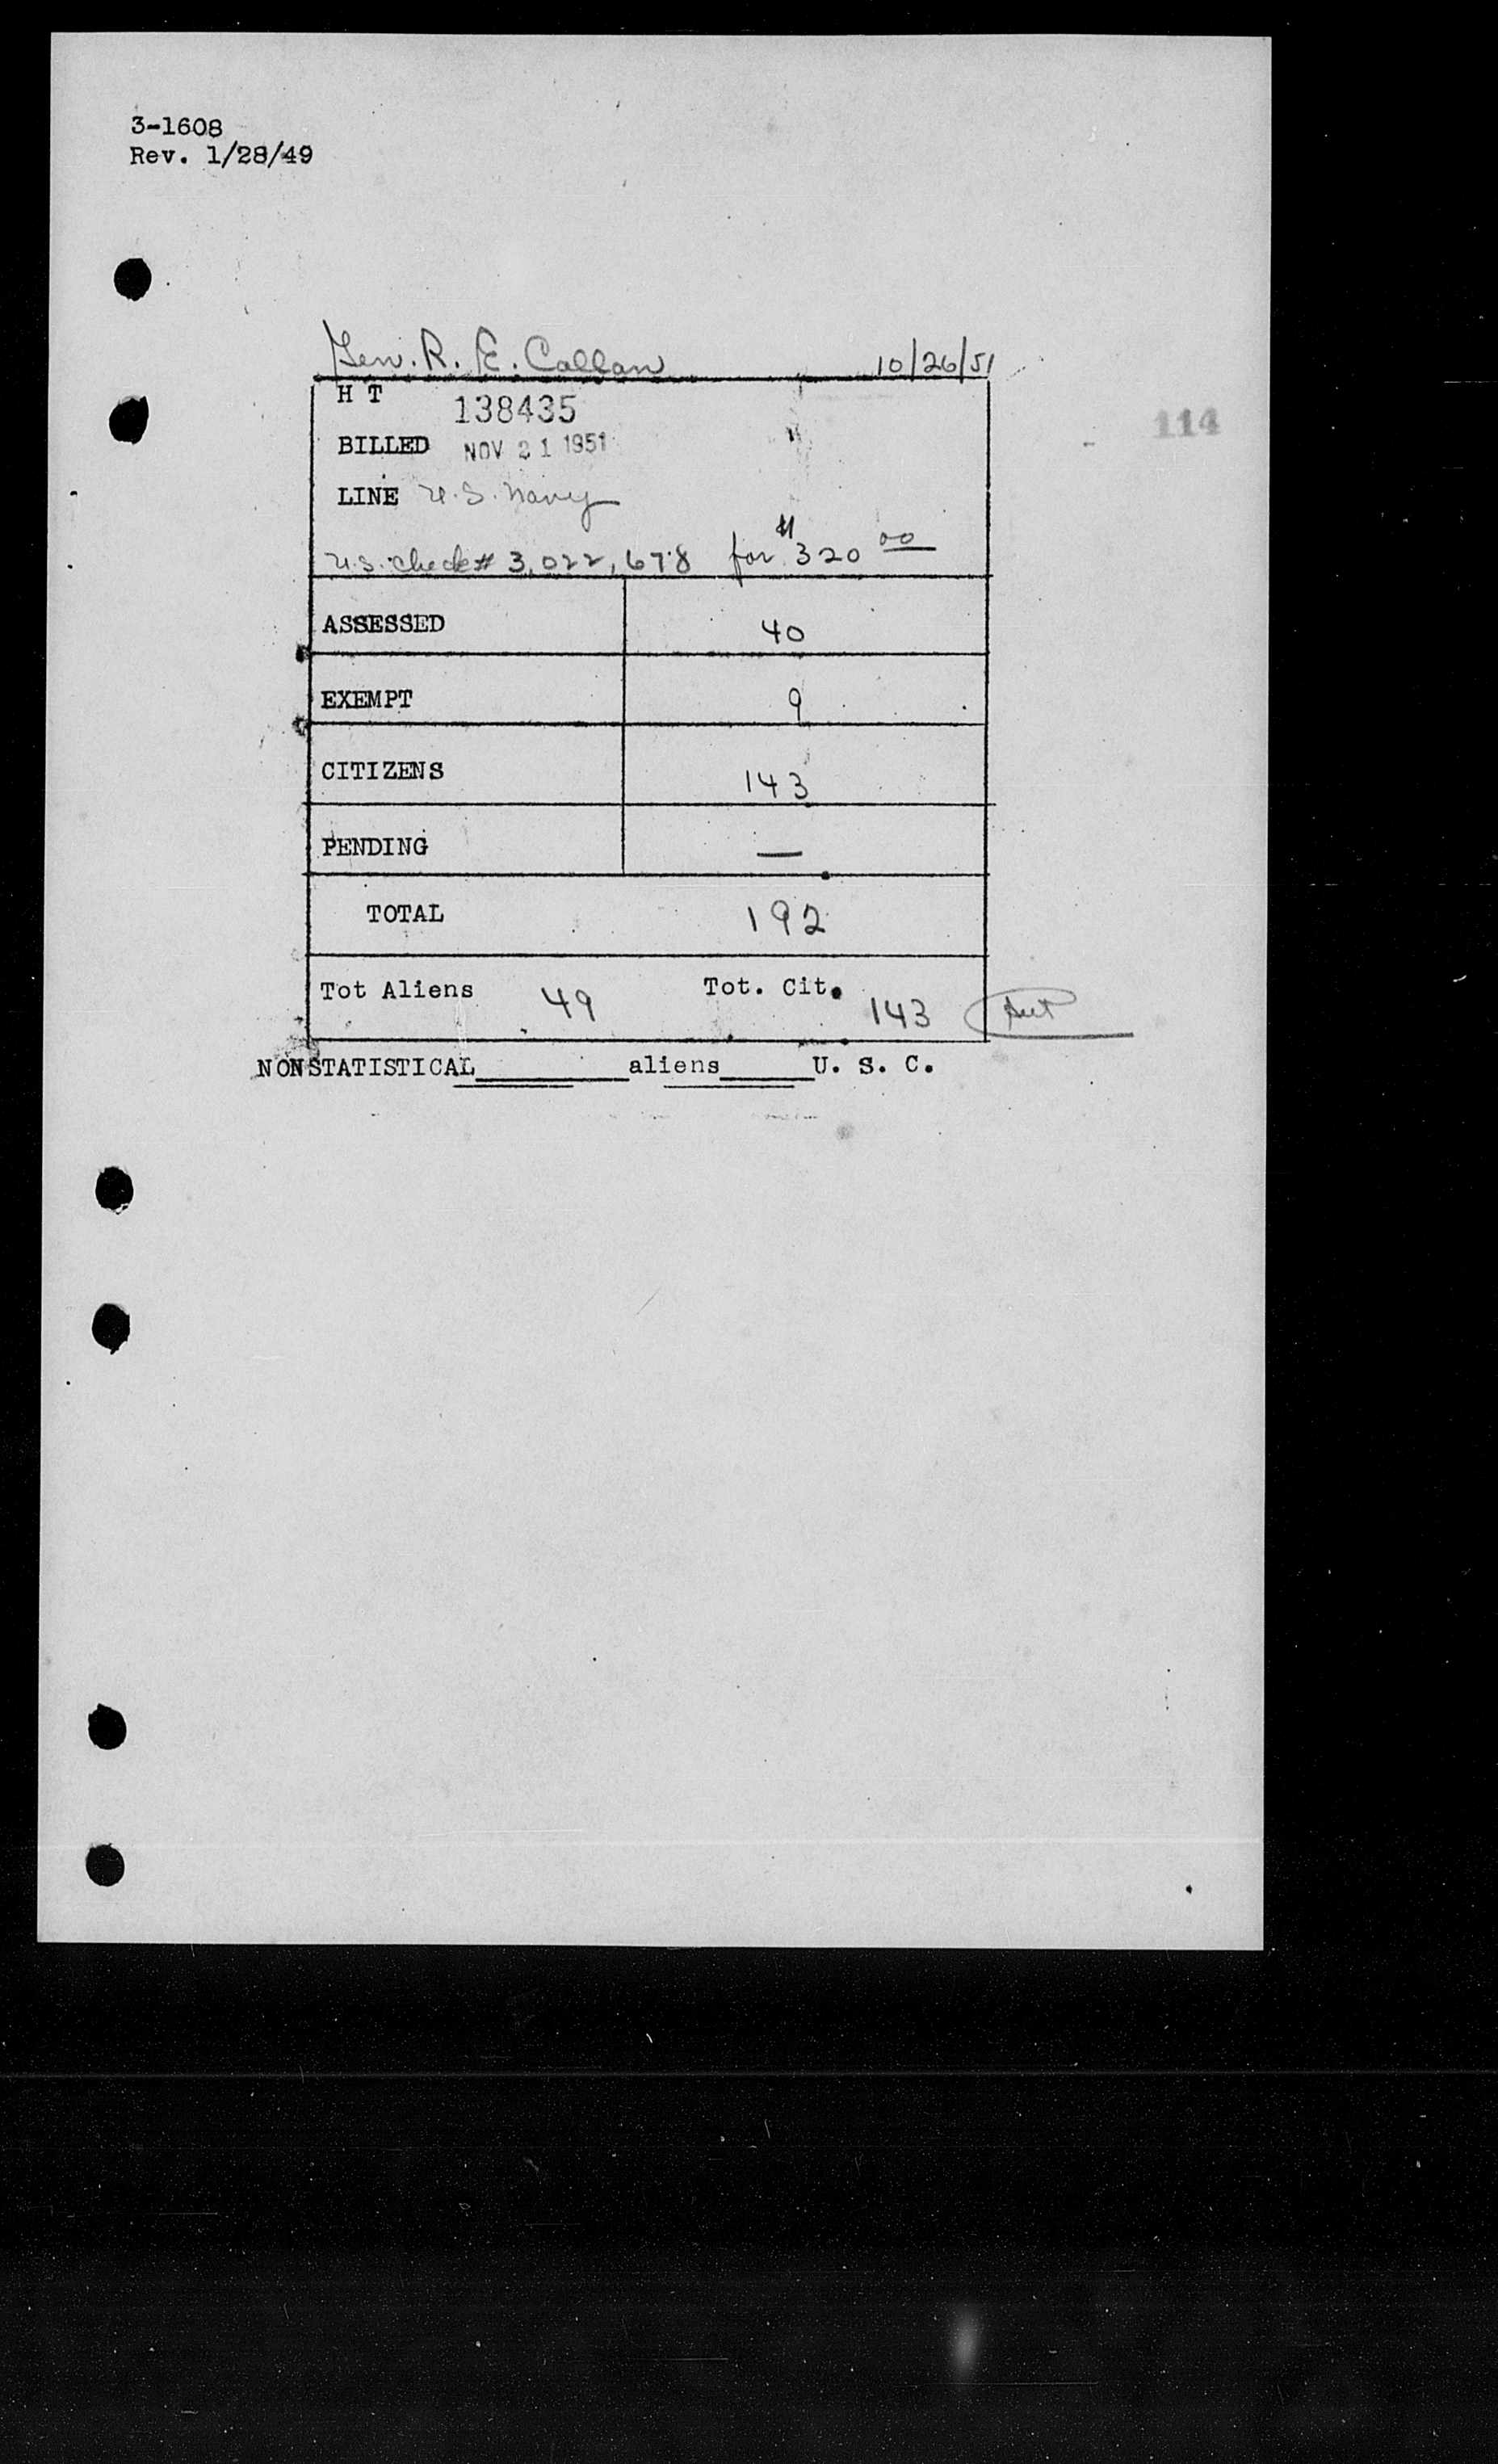 3-1608
Rev. 1/28/49
Gen. R. E. Callan 10/26/51
H T 138435
114
BILLED NOV 21 1951
LINE U.S. Navy
U.S. Check # 3,022,678 for $320 00
ASSESSED 40
EXEMPT 9
CITIZENS 143
PENDING —
TOTAL 192
Tot Aliens 49 Tot. Cit. 143
NONSTATISTICAL________aliens_____U. S. C.